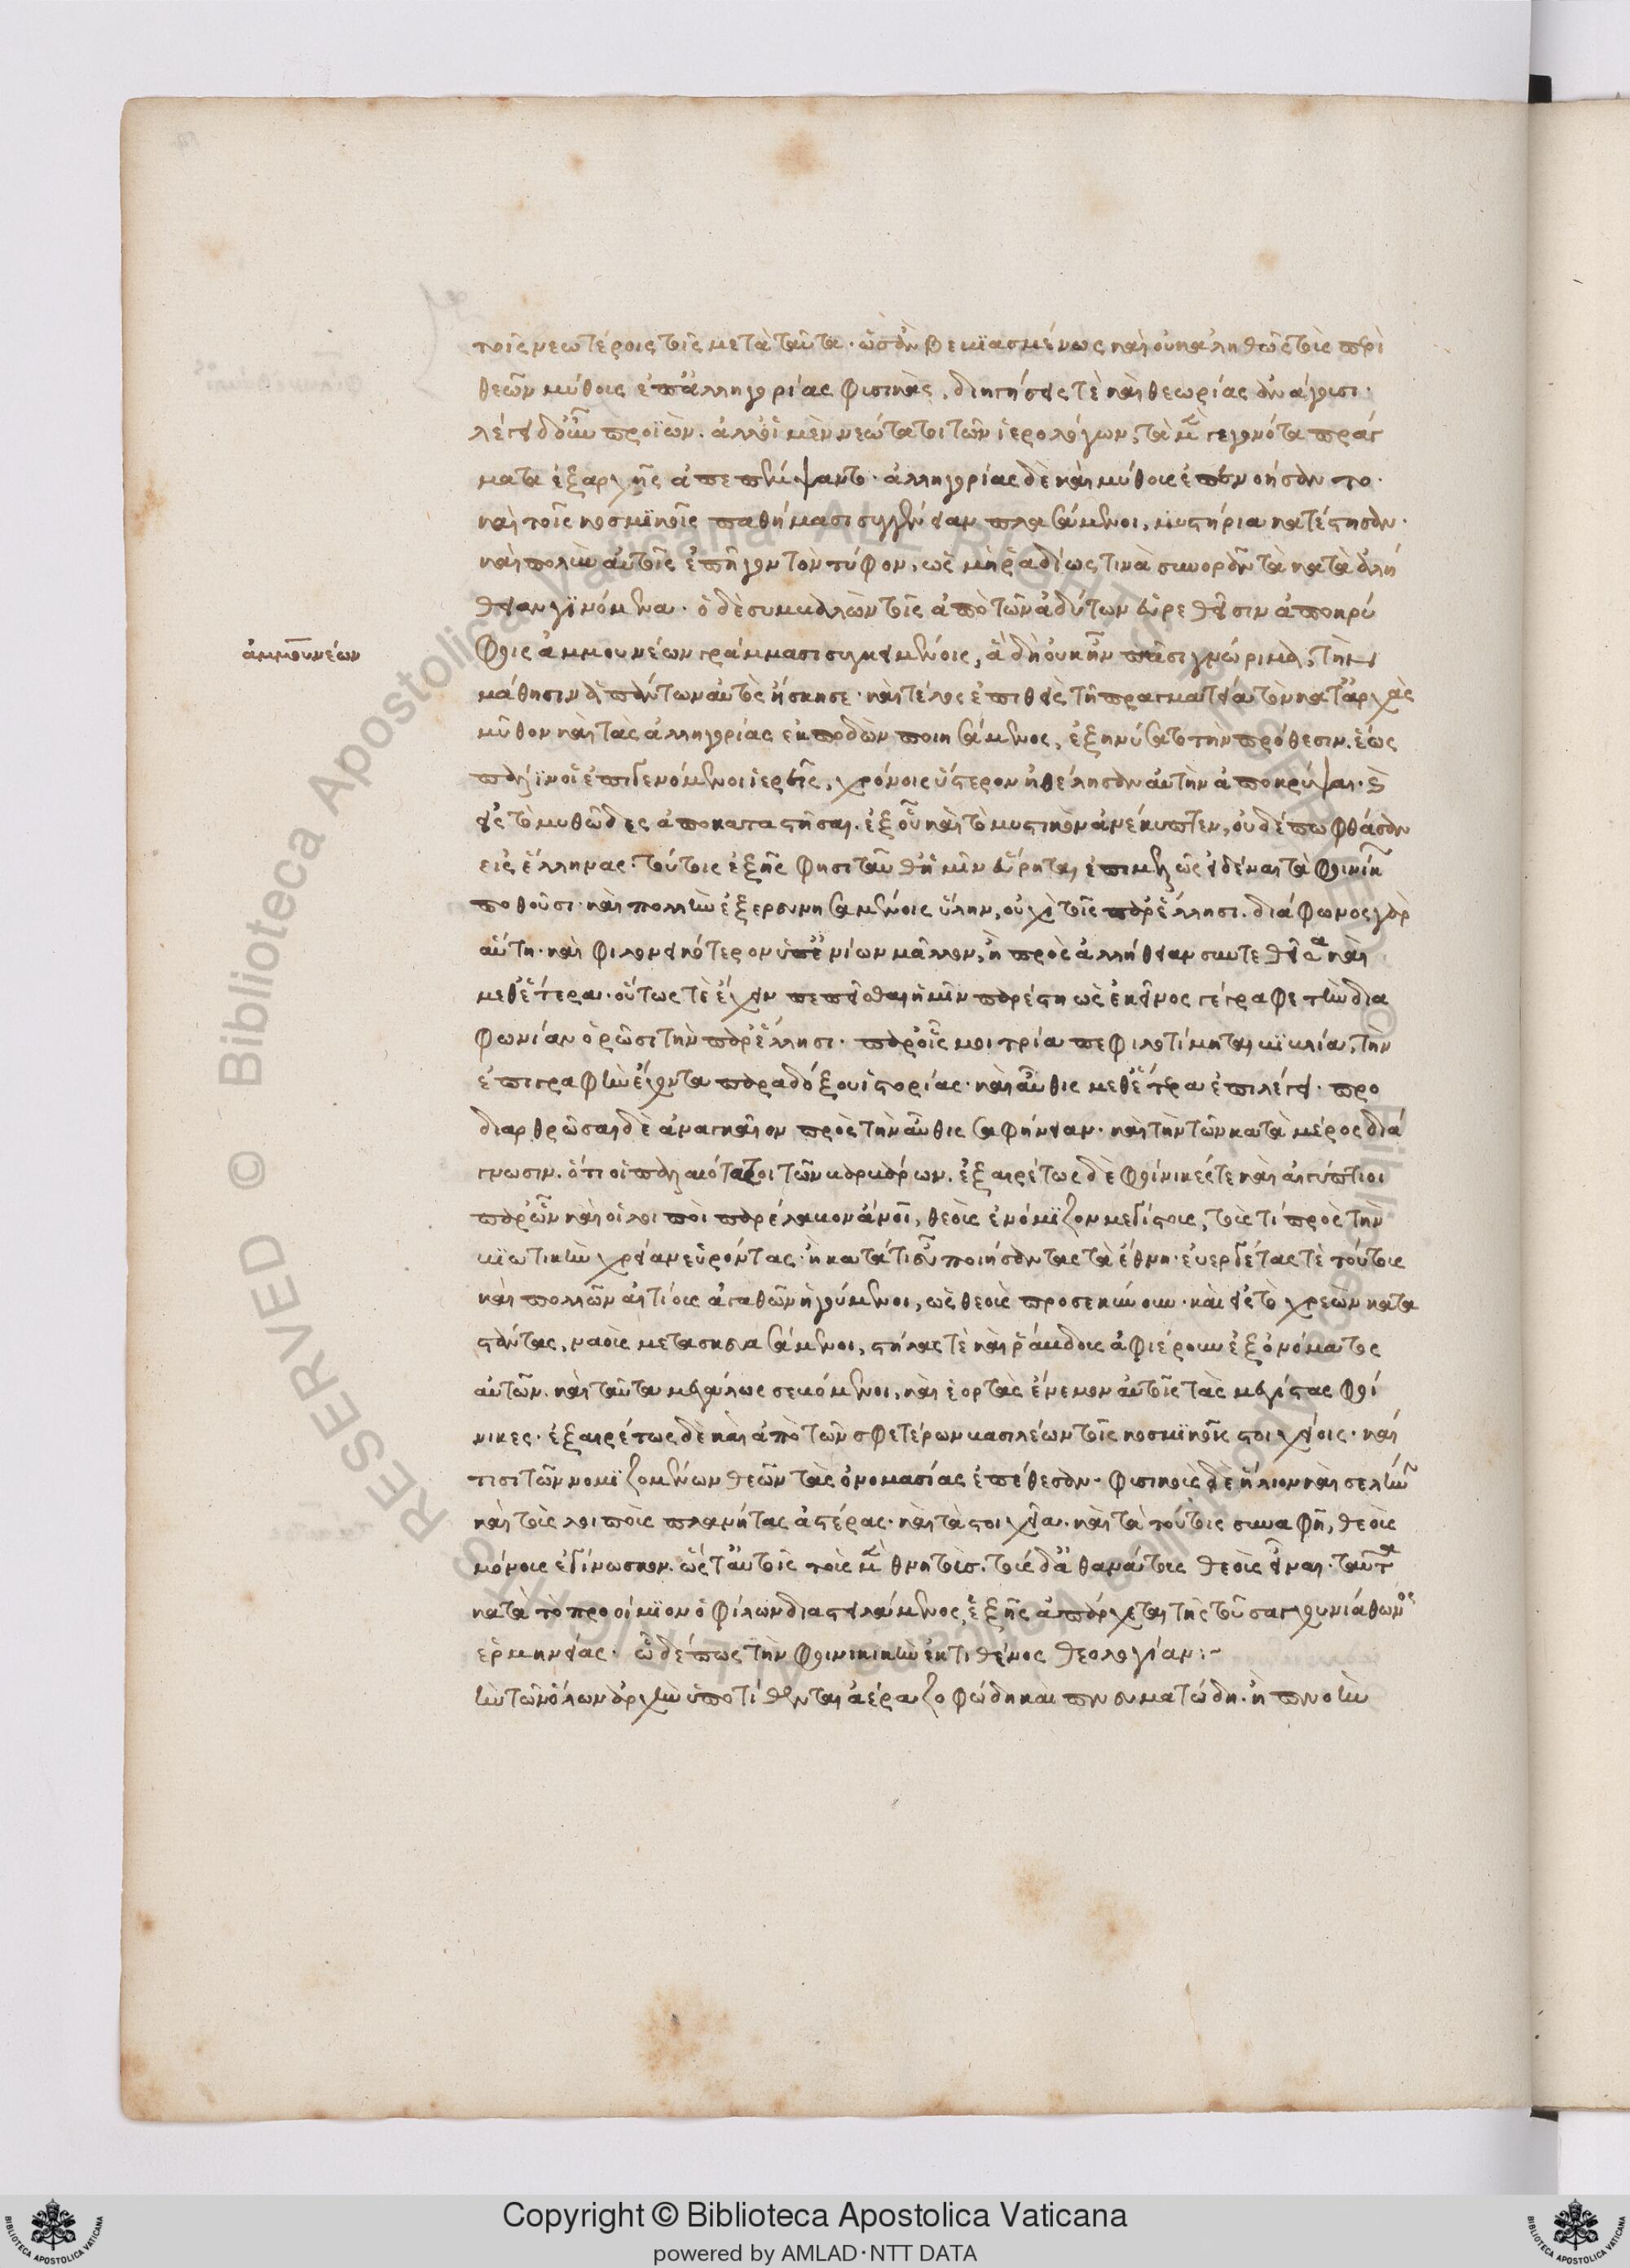 τοῖς νεωτέροις τοῖς μετὰ ταῦτα. ὡσὰν βεβιασμένως καὶ οὐκ ἀληθῶς τοὺς περὶ
θεῶν μύθους ἐπ' ἀλληγορίας φυσικὰς, διηγήσεις τὲ καὶ θεωρίας ἀνάγουσι.
λέγει δ' οὖν προϊὼν. ἀλλ' οἱ μὲν νεώτατοι τῶν ἱερολόγων, τὰ μὲν γεγονότα πράγ
ματα ἐξ ἀρχῆς ἀπεπέμψαντο. ἀλληγορίας δὲ καὶ μύθους ἐπενοήσαντο.
καὶ τοῖς κοσμικοῖς παθήμασι συγγένειαν πλασάμενοι, μυστήρια κατέστησαν.
καὶ πολὺν αὐτοῖς ἐπῆγον τὸν τύφον, ὡς μὴ ῥαδίως τινὰ συνορᾶν τὰ κατὰ ἀλή
θειαν γινόμενα. ὁ δὲ συμβαλὼν τοῖς ἀπὸ τῶν ἀδύτων εὑρεθεῖσιν ἀποκρύ
φοις ἀμμουνέων γράμμασι συγκειμένοις, ἃ δὴ οὐκ ἦν πᾶσι γνώριμα, τήν τε
μάθησιν ἁπάντων αὐτὸς ἤσκησε. καὶ τέλος ἐπιθεὶς τῇ πραγματείᾳ τὸν κατ' ἀρχὰς
μῦθον καὶ τὰς ἀλληγορίας ἐκποδὼν ποιησάμενος, ἐξηνύσατο τὴν πρόθεσιν. ἕως
πάλιν οἱ ἐπιγενόμενοι ἱερεῖς, χρόνοις ὕστερον ἠθέλησαν αὐτὴν ἀποκρύψαι. καὶ
εἰς τὸ μυθῶδες ἀποκαταστῆσαι. ἐξ οὗ καὶ τὸ μυστικὸν ἀνέκυπτεν, οὐδέπω φθάσαν
εἰς ἕλληνας. τούτοις ἑξῆς φησὶ ταῦθ' ἡμῖν εὕρηται ἐπιμελῶς εἰδέναι τὰ φοινίκων
ποθοῦσι. καὶ πολλὴν ἐξερευνησαμένοις ὕλην, οὐχὶ τοῖς παρ' ἕλλησι. διάφωνος γὰρ
αὕτη. καὶ φιλονεικότερον ὑπ' ἐνίων μᾶλλον, ἢ πρὸς ἀλλήθειαν συντεθεῖσα καὶ
μεθ' ἕτερα. οὕτως τὲ ἔχειν πεπεῖσθαι ἡμῖν παρέστη ὡς ἐκεῖνος γέγραφε τὴν δια
φωνίαν ὁρῶσι τὴν παρ' ἕλλησι. παρ' οἷς μοι τρία πεφιλοτίμηται βιβλία, τὴν
ἐπιγραφὴν ἔχοντα παραδόξου ἱστορίας. καὶ αὖθις μεθ' ἕτερα ἐπιλέγει. προ
διαρθρῶσαι δὲ ἀναγκαῖον πρὸς τὴν αὖθις σαφήνειαν. καὶ τὴν τῶν κατὰ μέρος διά
γνωσιν. ὅτι οἱ παλαιότατοι τῶν βαρβάρων. ἐξαιρέτως δὲ φοίνικές τε καὶ αἰγύπτιοι
παρ' ὧν καὶ οἱ λοιποὶ παρέλαβον ἄνθρωποι, θεοὺς ἐνόμιζον μεγίστους, τοὺς τὶ πρὸς τὴν
βιωτικὴν χρείαν εὑρόντας. ἢ κατὰ τι εὖ ποιήσαντας τὰ ἔθνη. εὐεργέτας τὲ τούτους
καὶ πολλῶν αἰτίους ἀγαθῶν ἡγούμενοι, ὡς θεοὺς προσεκύνουν. καὶ εἰς τὸ χρεὼν κατα
στάντας, ναοὺς μετασκευασάμενοι, στήλας τὲ καὶ ῥάβδους ἀφιέρουν ἐξ ὀνόματος
αὐτῶν. καὶ ταῦτα μεγάλως σεβόμενοι, καὶ ἑορτὰς ἔνεμον αὐτοῖς τὰς μεγίστας φοί
νικες. ἐξαιρέτως δὲ καὶ ἀπὸ τῶν σφετέρων βασιλέων τοῖς κοσμικοῖς στοιχείοις. καὶ
τισι τῶν νομιζομένων θεῶν τὰς ὀνομασίας ἐπέθεσαν. φυσικοὺς δὲ ἥλιον καὶ σελήνην
καὶ τοὺς λοιποὺς πλανήτας ἀστέρας. καὶ τὰ στοιχεῖα. καὶ τὰ τούτοις συναφῆ, θεοὺς
μόνους ἐγίνωσκον. ὥστ' αὐτοῖς τοὺς μὲν θνητοὺς. τοὺς δ' ἀθανάτους θεοὺς εἶναι. ταῦτα
κατὰ τὸ προοίμιον ὁ φίλων διαστειλάμενος, ἑξῆς ἀπάρχεται τῆς τοῦ σαγχουνιάθωνος
ἑρμηνείας. ὧδέ πως τὴν φοινικικὴν ἐκτιθέμενος θεολογίαν:~
τὴν τῶν ὅλων ἀρχὴν ὑποτίθεται ἀέρα ζοφώδη καὶ πνευματώδη. ἢ πνοὴν
ἀμμουνέων
Copyright © Biblioteca Apostolica Vaticana
powered by AMLAD·NTT DATA